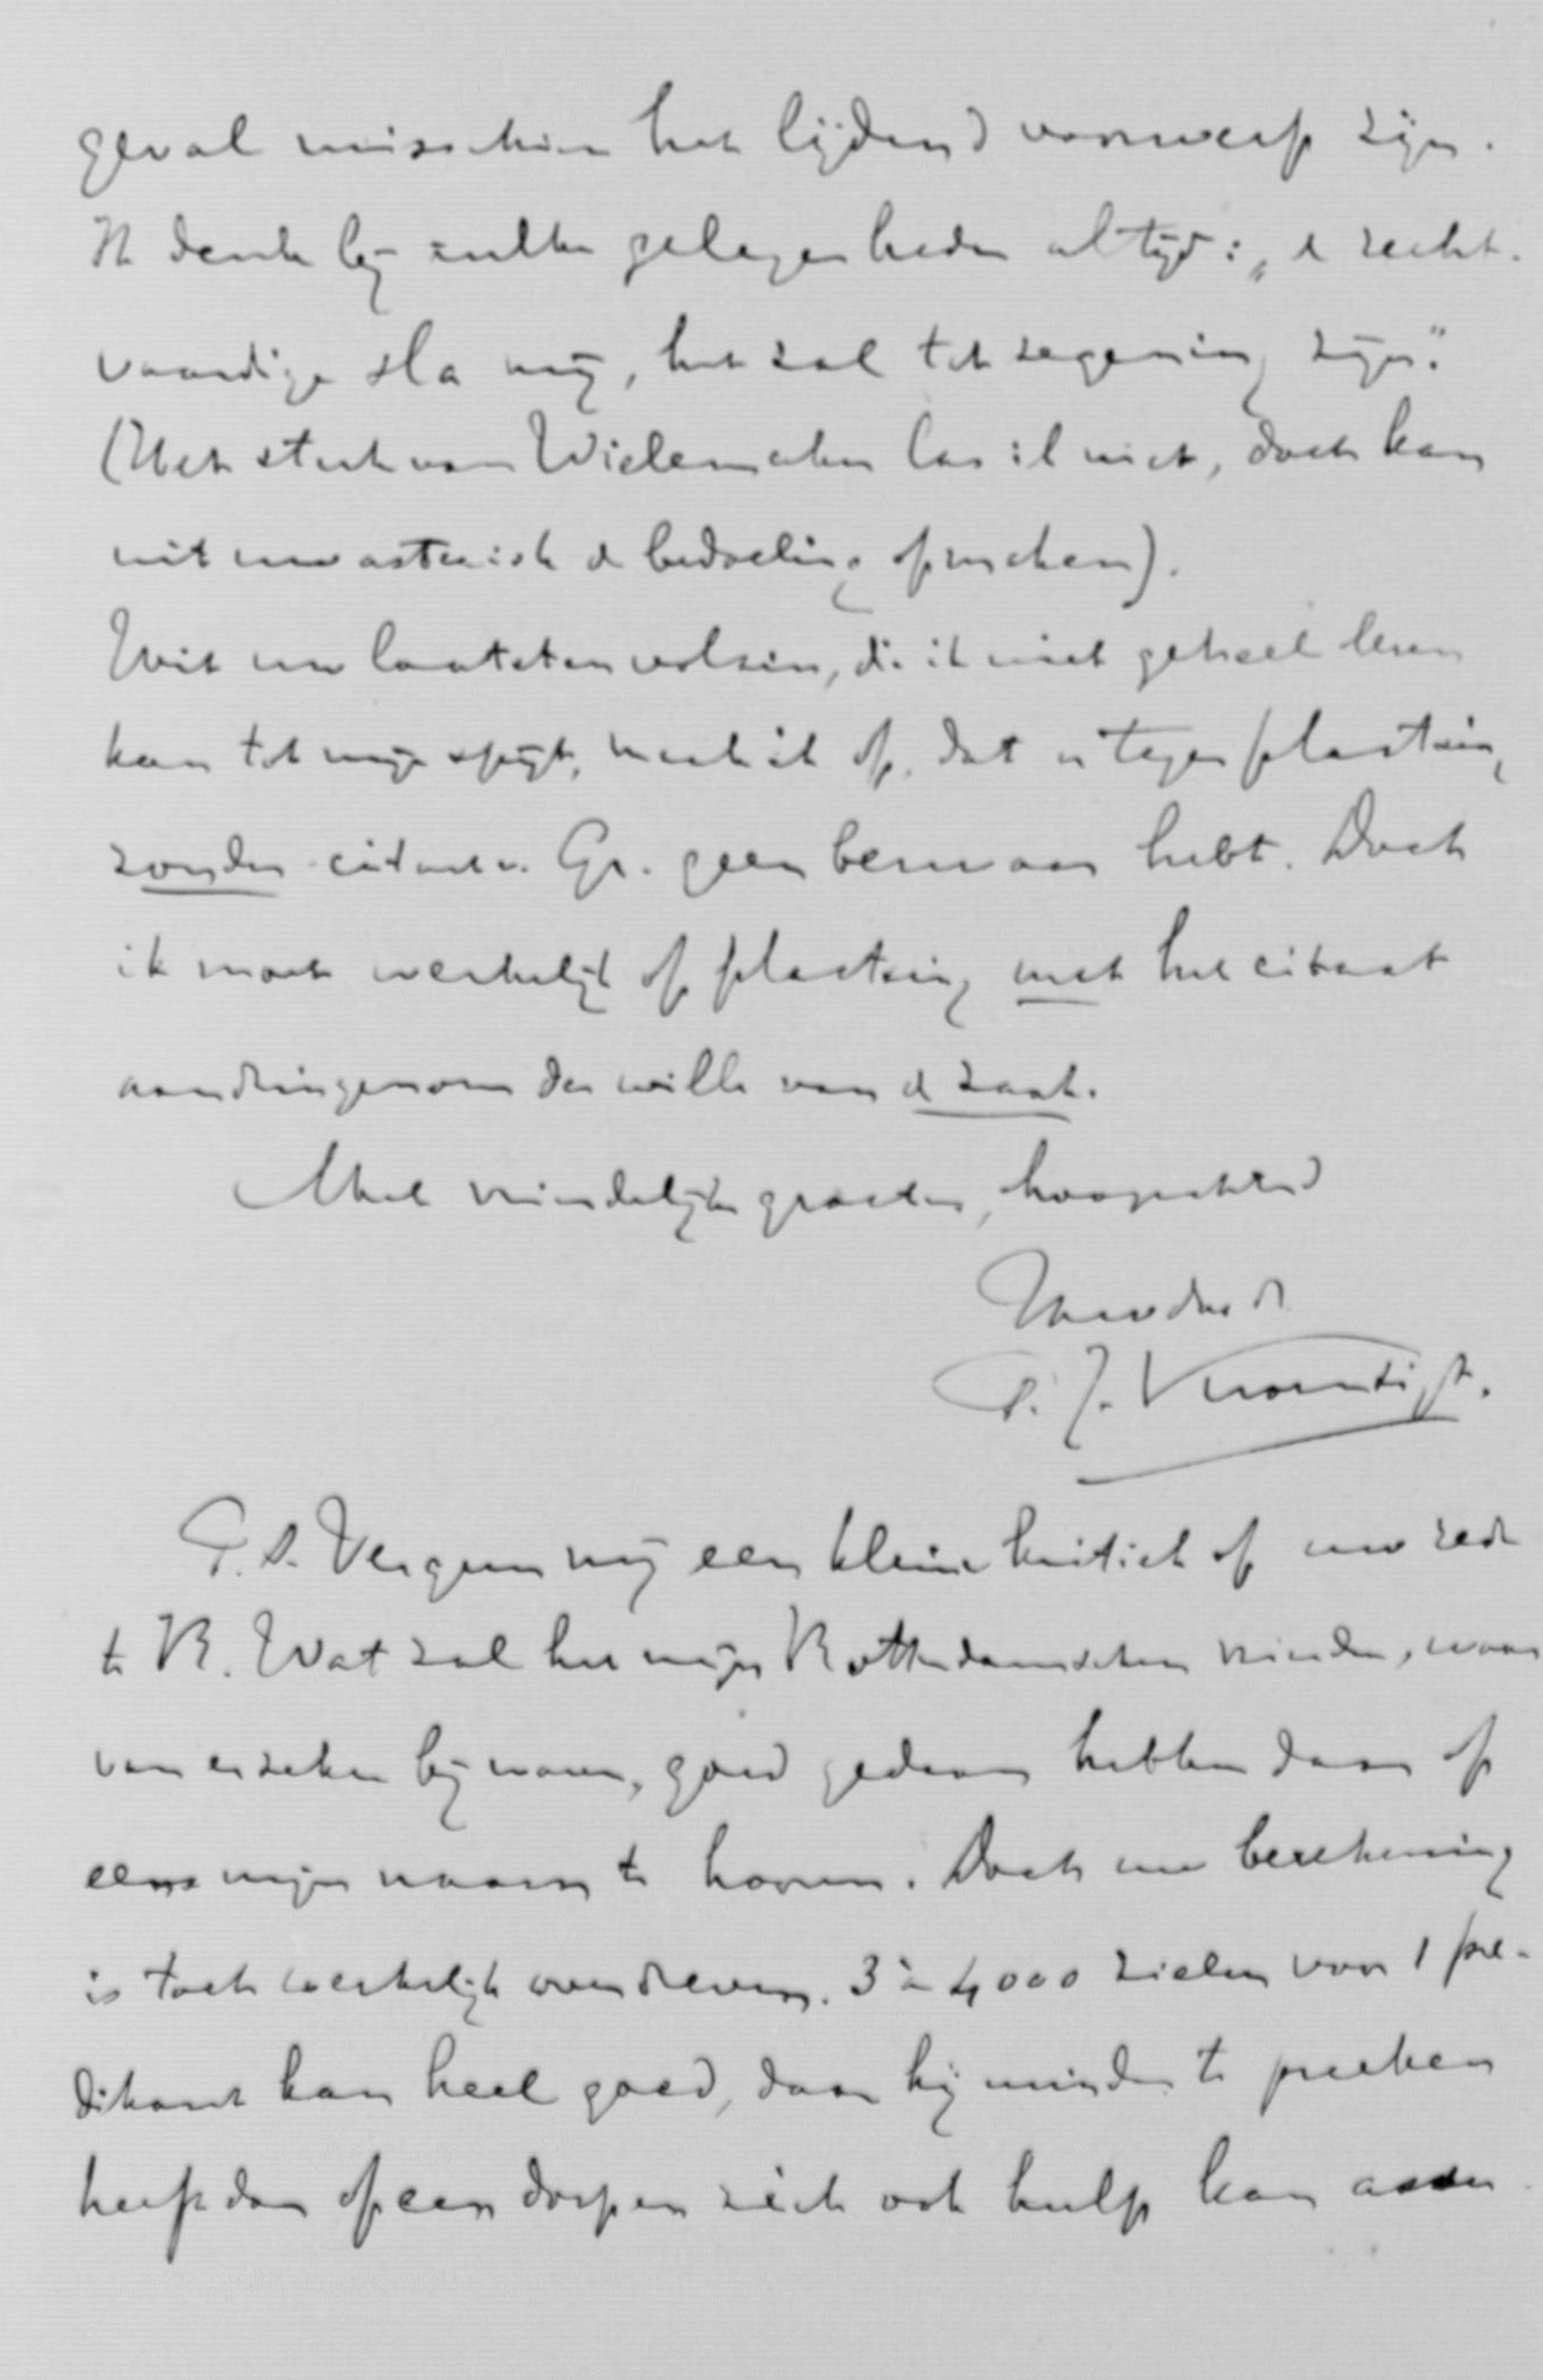 geval misschien het lijdend voorwerp zijn.
Ik denk bij zulke gelegenheden altijd: „de recht-
vaardige sla mij, het zal tot zegening zijn."
(Het stuk van Wielemaker las ik niet, doch kan
uit uw asterisk de bedoeling opmaken).
Uit uw laatsten volzin, die ik niet geheel lezen
kan tot mijn spijt, merk ik op, dat u tegen plaatsing
zonder citaat v. Gr. geen bezwaar hebt. Doch
ik moet werkelijk op plaatsing met het citaat
aandringen om der wille van de zaak.
Met vriendelijke groeten, hoogachtend
Uw dw. dr.
P. J. Kromsigt.
P.S. Vergun mij een kleine kritiek op uw rede
te R. Wat zal het mijn Rotterdamschen vrienden, waar
van er zeker bij waren, goed gedaan hebben daar op
eens mijn naam te hooren. Doch uw berekening
is toch werkelijk overdreven. 3 à 4000 zielen voor 1 pre-
dikant kan heel goed, daar hij minder te preeken
heeft dan op een dorp en zich ook hulp kan